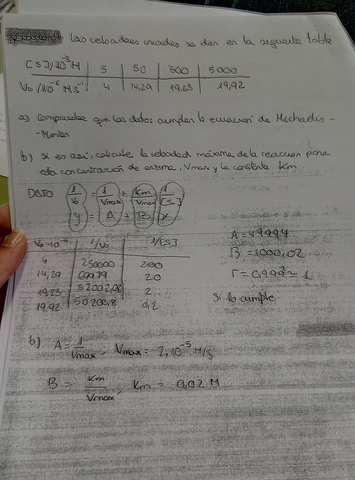 Las velocidades iniciales se dan en la siguiente tabla
[S]/10⁻³M 5 50 500 5000
V₀/10⁻⁶ Ms⁻¹ 4 14,29 19,23 19,92
a) Compruebe que los datos cumplen la ecuación de Michaelis-
-Menten
b) Si es así, calcule la velocidad máxima de la reacción para
esta concentración de enzima, Vmax y la constante Km
DATO 1/V₀ = 1/Vmax + Km/Vmax 1/[S]
y = A + B x
V₀·10⁻⁶ 1/V₀ 1/[S]
4 250000 200
14,29 69979 20
19,23 52002,08 2
19,92 50200,8 0,2
A = 49994
B = 1000,02
r = 0,999 ≈ 1
Si lo cumple
b) A = 1/Vmax, Vmax = 2·10⁻⁵ M/s
B = Km/Vmax, Km = 0,02 M